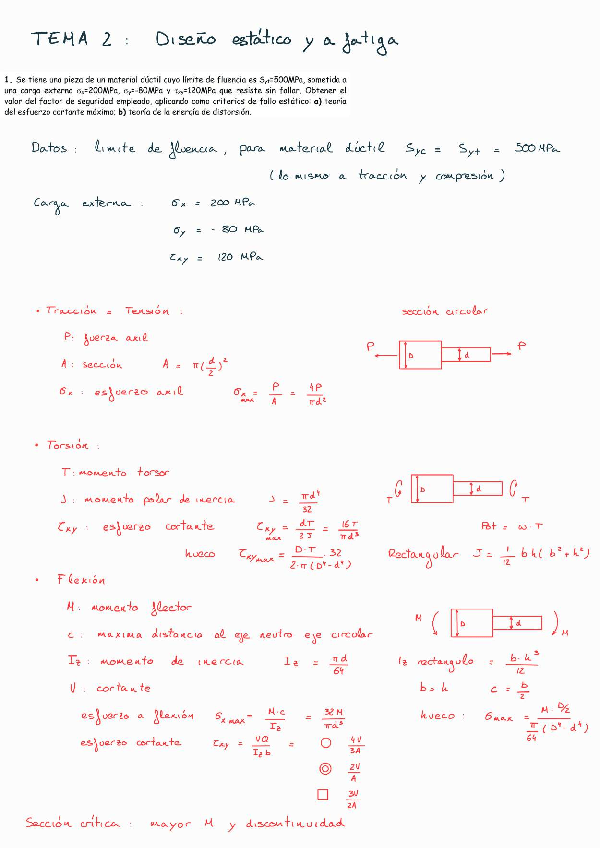 TEMA 2 : Diseño estático y a fatiga
1. Se tiene una pieza de un material dúctil cuyo límite de fluencia es Syt=500MPa, sometida a
una carga externa σx=200MPa, σy=-80MPa y τxy=120MPa que resiste sin fallar. Obtener el
valor del factor de seguridad empleado, aplicando como criterios de fallo estático: a) teoría
del esfuerzo cortante máximo; b) teoría de la energía de distorsión.
Datos : limite de fluencia , para material dúctil Syc = Syt = 500 MPa
( lo mismo a tracción y compresión )
Carga externa : σx = 200 MPa
σy = - 80 MPa
τxy = 120 MPa
• Tracción = Tensión : sección circular
P: fuerza axil
P D d P
A : sección A = π(d/2)²
σx : esfuerzo axil σx max = P/A = 4P/πd²
• Torsión :
T: momento torsor
T D d T
J : momento polar de inercia J = πd⁴/32
τxy : esfuerzo cortante τxy max = dT/2J = 16T/πd³ Pot = ω · T
hueco τxy max = D·T/2·π(D⁴-d⁴) · 32 Rectangular J = 1/12 b h ( b² + h² )
• Flexión
M : momento flector
M D d M
c : maxima distancia al eje neutro eje circular
Iz : momento de inercia Iz = πd/64 Iz rectangulo = b·h³/12
V : cortante b = h c = b/2
esfuerzo a flexión Sx max = M·c/Iz = 32M/πd³ hueco : σmax = M·D/2 / π/64 (D⁴ - d⁴)
esfuerzo cortante τxy = VQ/Iz b = 4V/3A
2V/A
3V/2A
Sección crítica : mayor M y discontinuidad